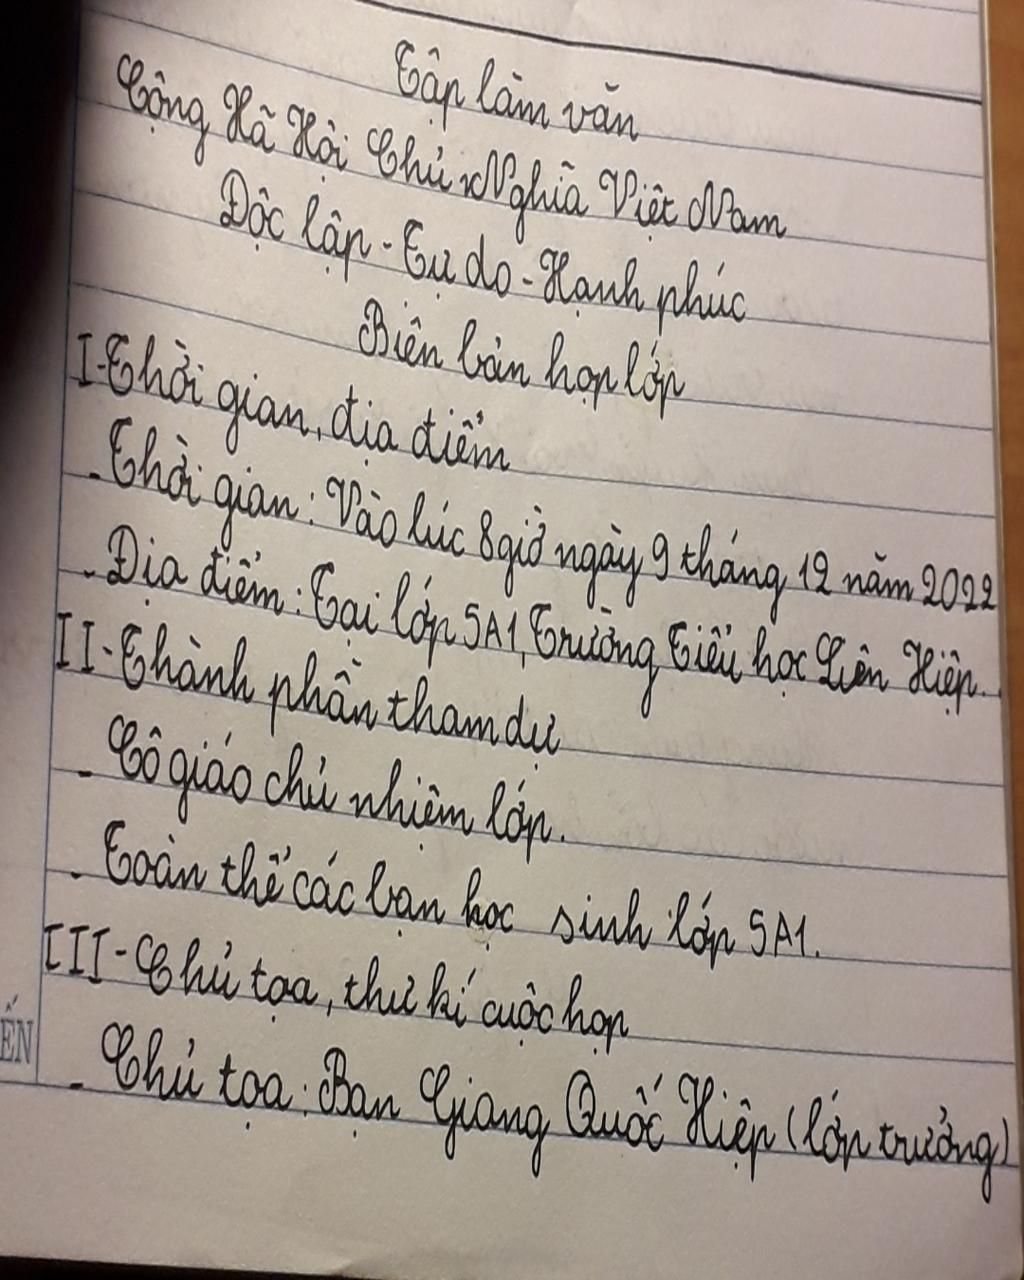 Tập làm văn
Cộng Hã Hội Chủ Nghĩa Việt Nam
Độc lập - Tự do - Hạnh phúc
Biên bản họp lớp
I - Thời gian, địa điểm
- Thời gian: Vào lúc 8 giờ ngày 9 tháng 12 năm 2022
- Địa điểm: Tại lớp 5A1, Trường Tiểu học Liên Hiệp.
II - Thành phần tham dự
- Cô giáo chủ nhiệm lớp.
- Toàn thể các bạn học sinh lớp 5A1.
III - Chủ tọa, thư kí cuộc họp
ẾN
- Chủ tọa: Bạn Giang Quốc Hiệp (lớp trưởng)